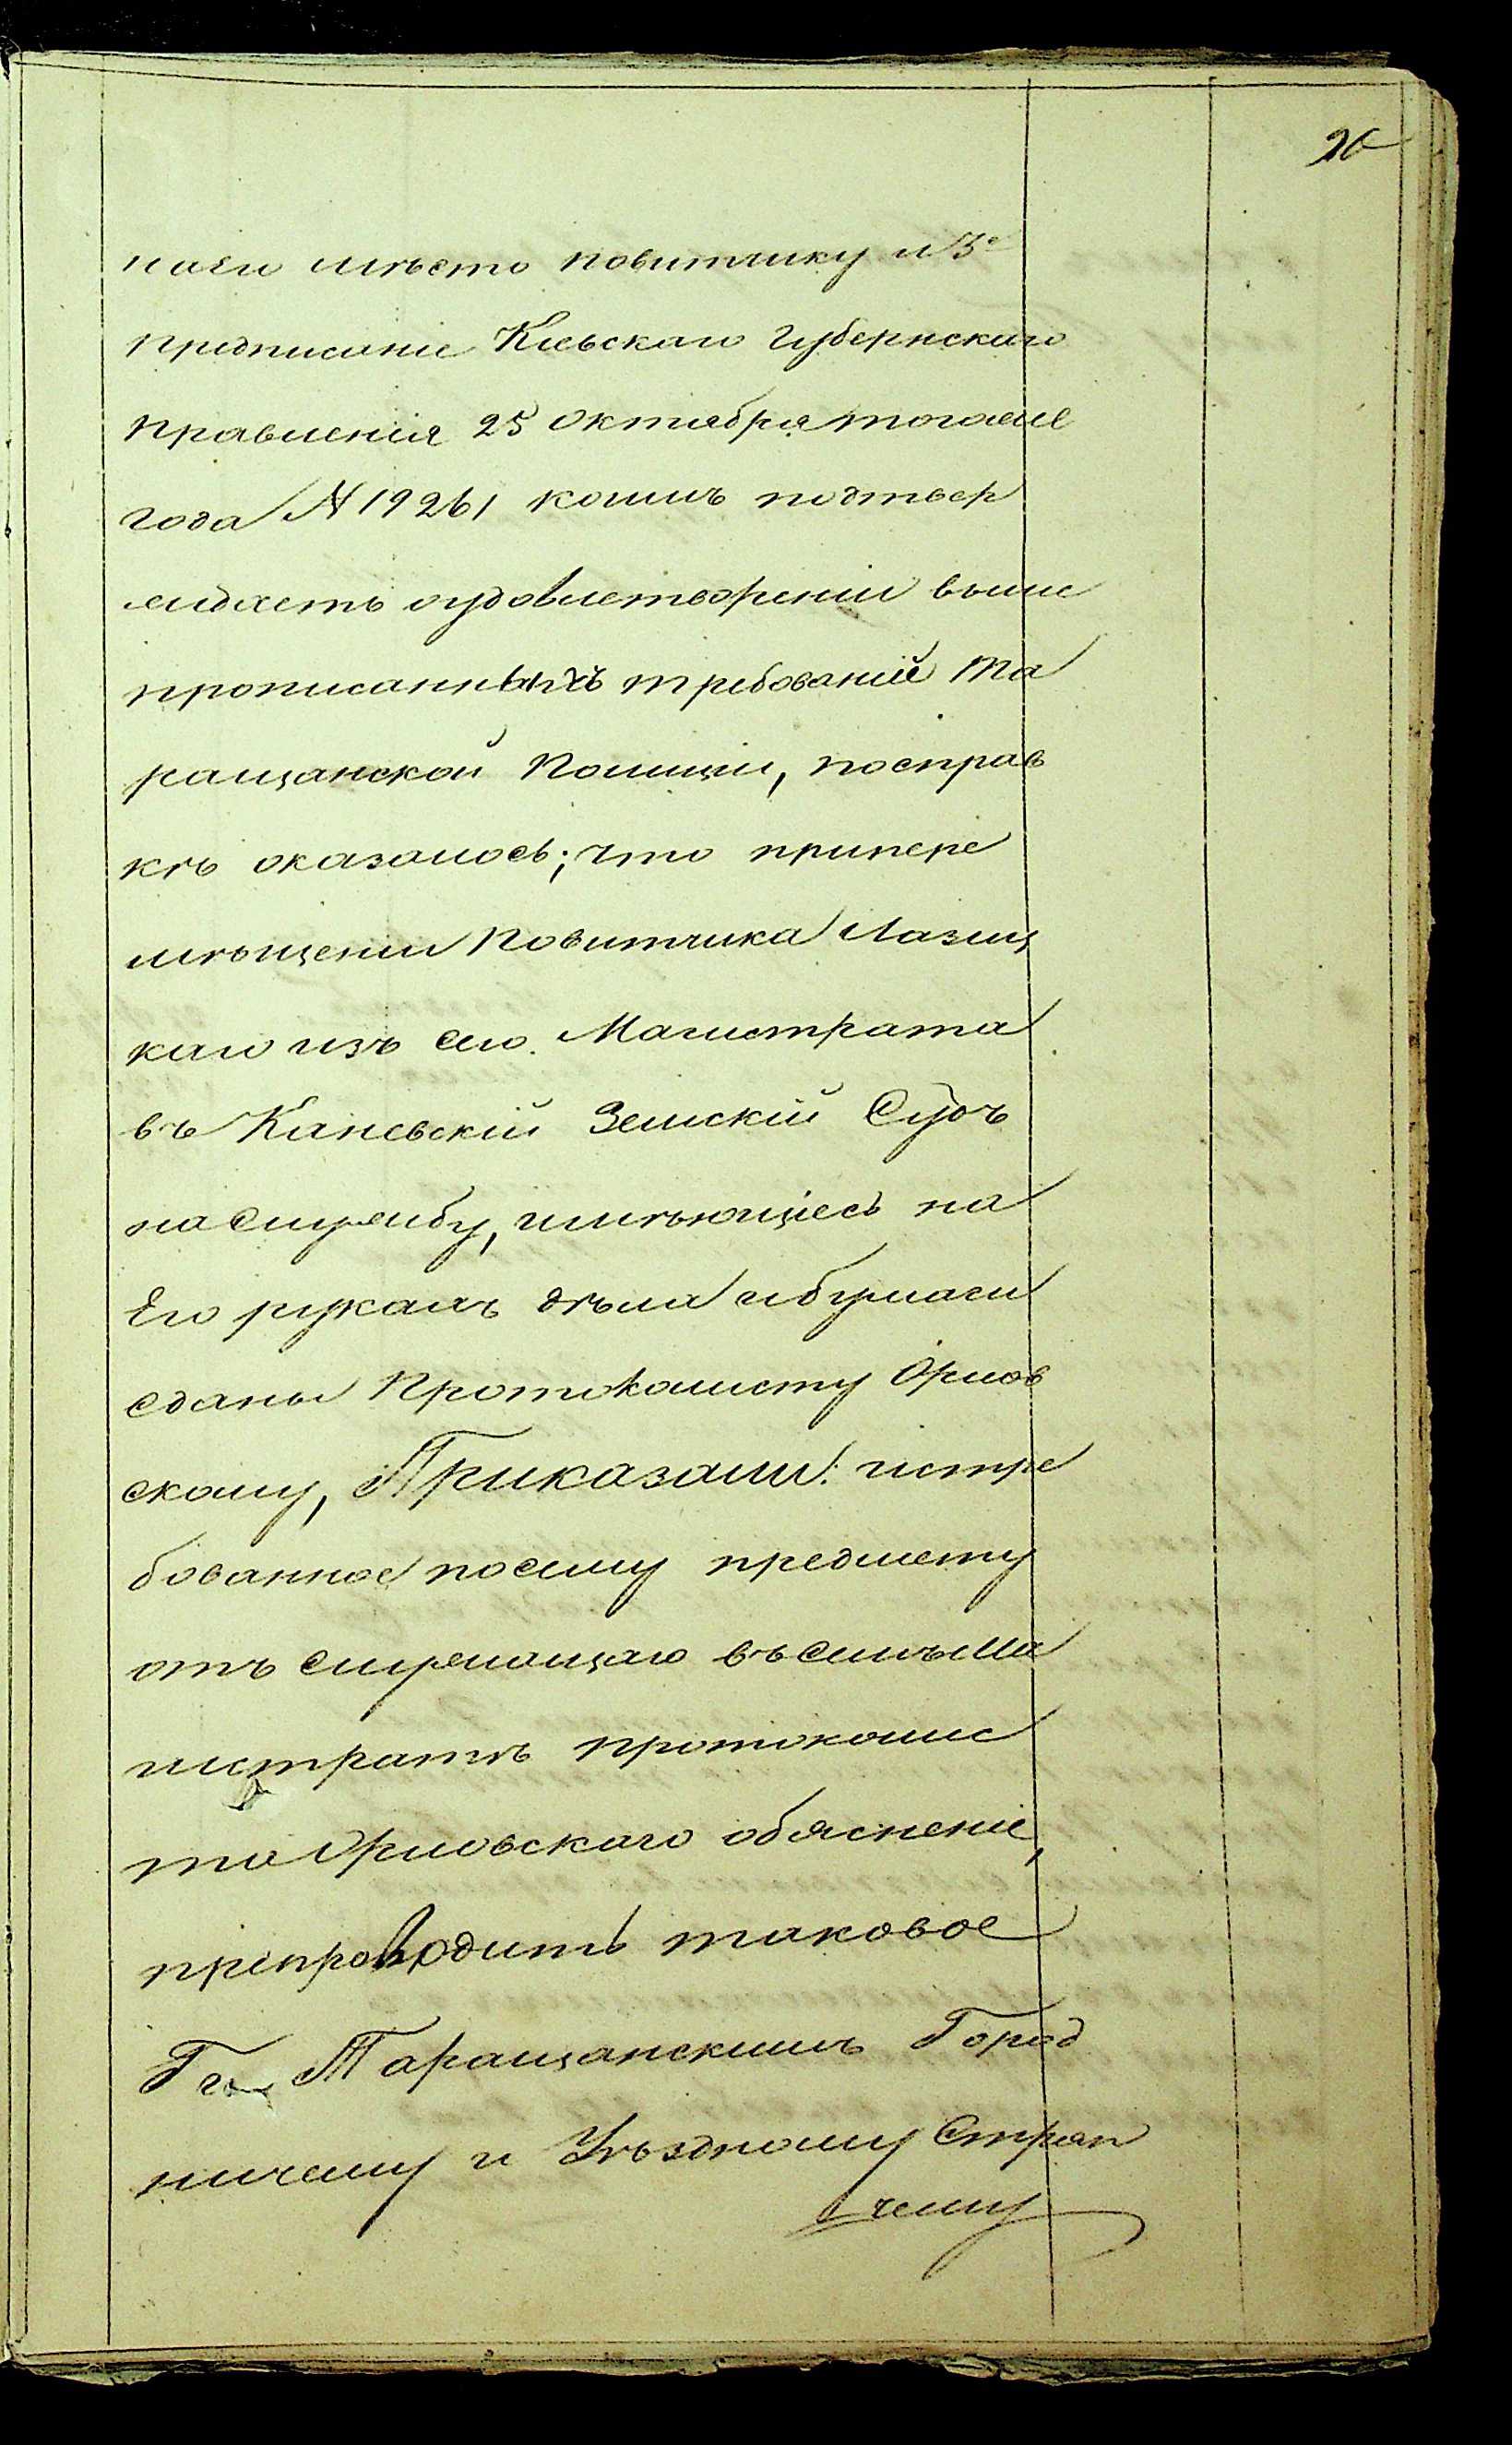 20
его мѣсто повитчику и 3е
предписаніе Кіевскаго Губернскаго
Правленія 25 Октября тогоже
года № 19261 коимъ подтвер
ждаетъ оудовлетвореніи выше
прописанныхъ требованій Та
ращанской Полиціи, посправ
кѣ оказалось; что припере
мѣщеніи Повитчика Лазиц
каго изъ сего Магистрата
въ Каневскій Земскій Судъ
наслужбу, имѣющіесь на
Его рукахъ дѣла ибумаги
сданы Протоколисту Орлов
скому, Приказали: истре
бованное посему предмету
отъ служащаго въсемъ Ма
гистратѣ протоколис
та Орловскаго обясненіе,
препроводить таковое
Гг. Таращанскимъ Город
ничему и Уѣздному Стряп
чему